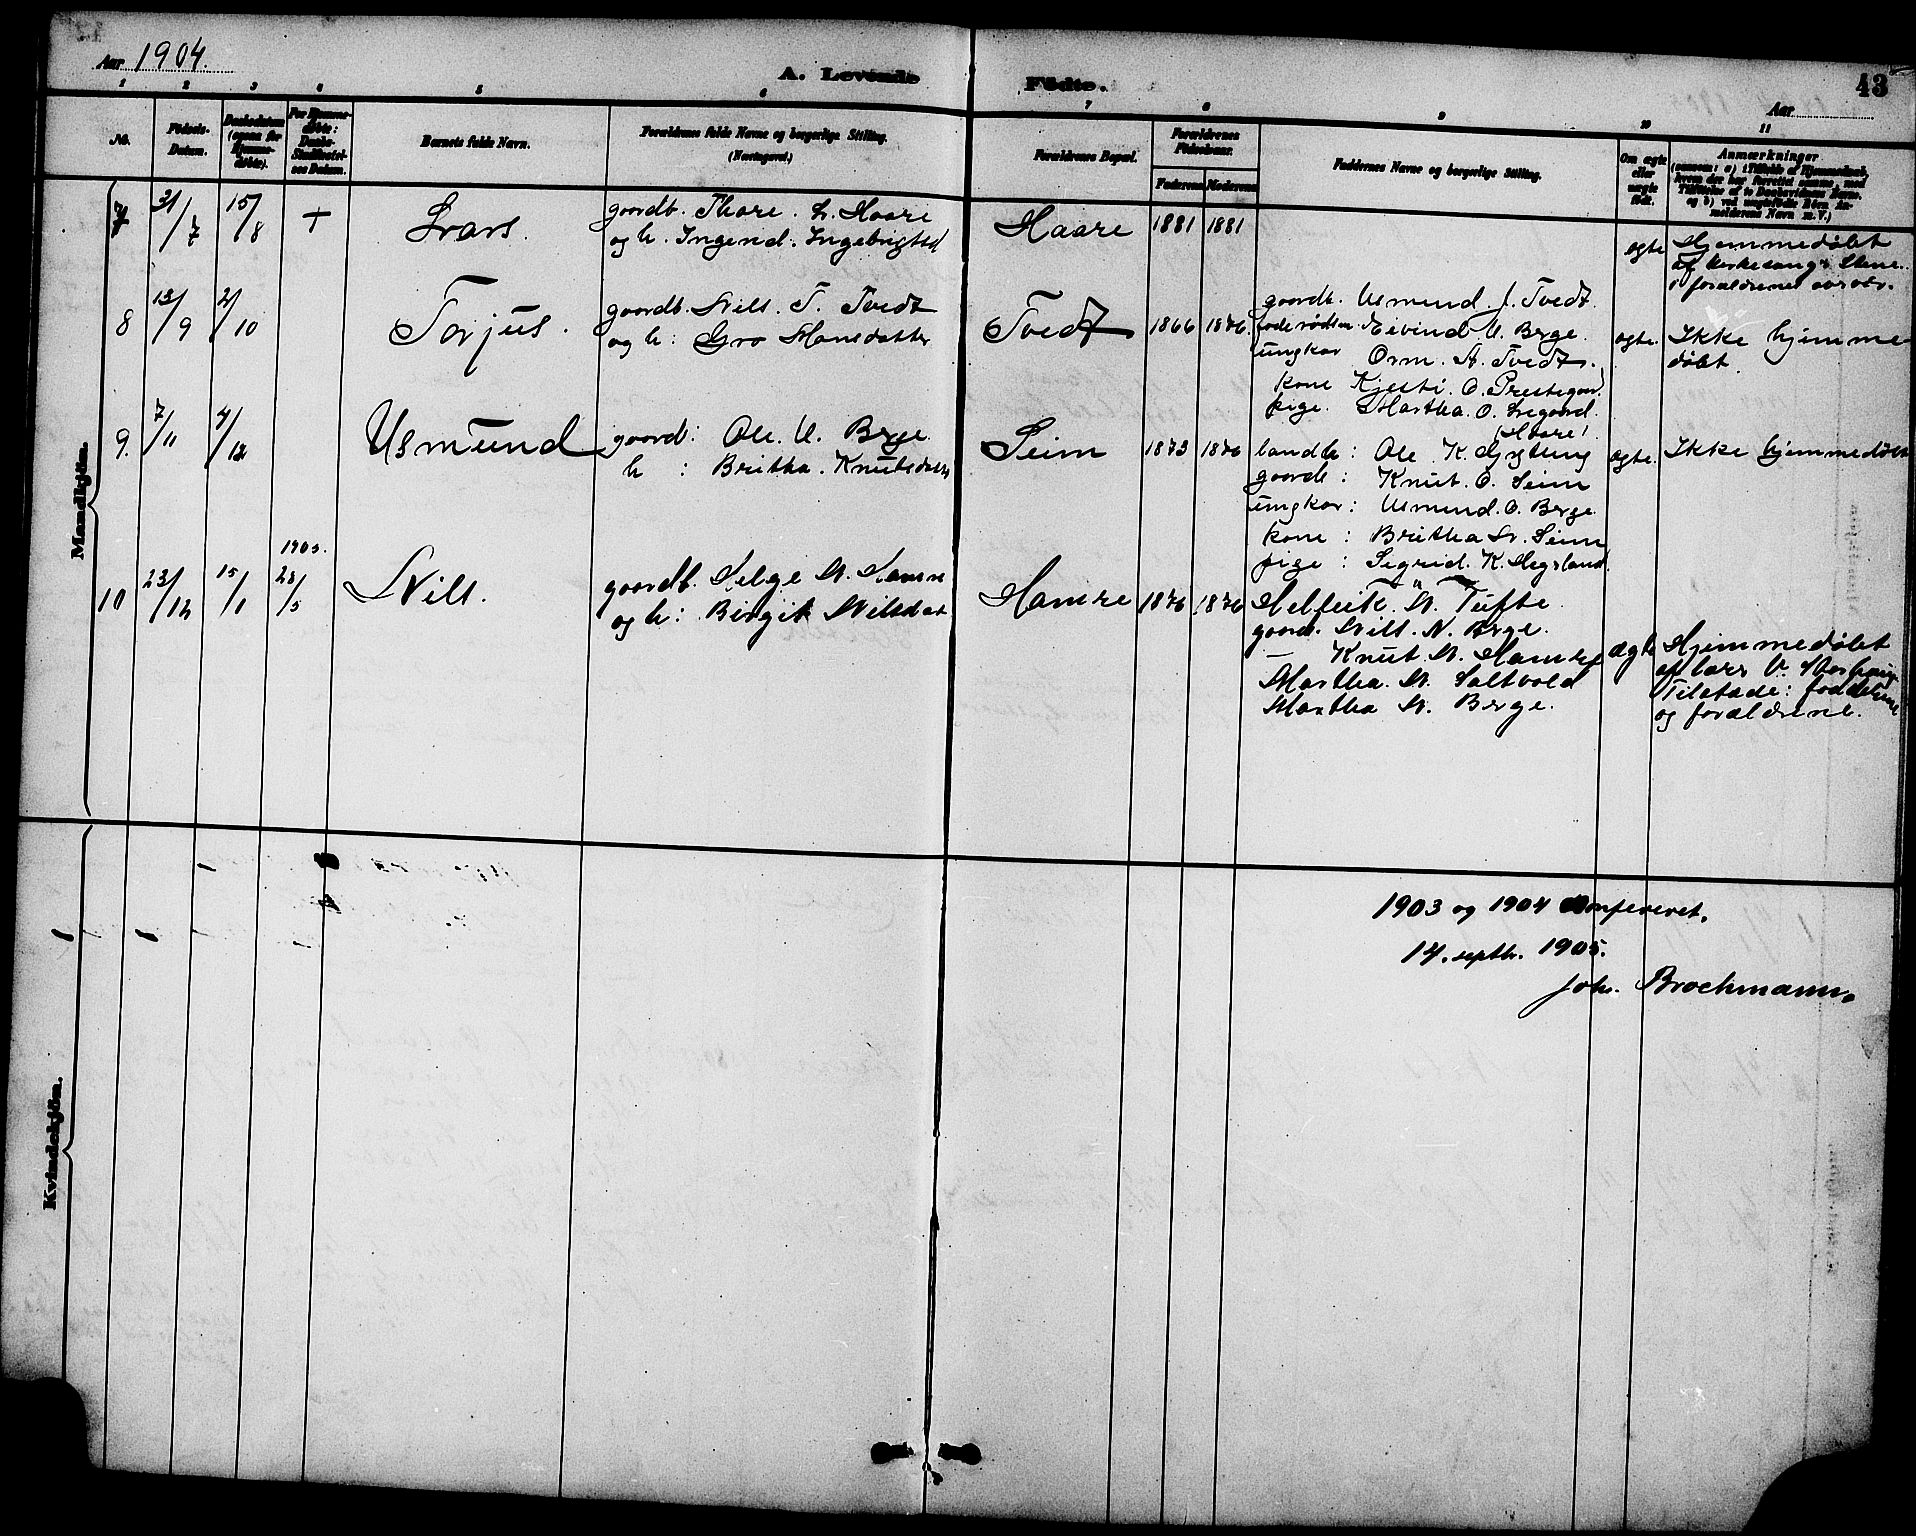 Aar 1904.
A. Levende Fødte.
43
Aar
1 2 3 4 5 6 7 8 9 10 11
No.
Fødsels-Datum.
Daabsdatum (ogsaa for Hjemmedøbte).
For Hjemmedøbte: Daabs-Stadfæstelses Datum.
Barnets fulde Navn.
Forældrenes fulde Navne og borgerlige Stilling.
Forældrenes Bopæl.
Forældrenes Fødselsaar.
Faderens Moderens
Faddernes Navne og borgerlige Stilling.
Om ægte eller uægte født.
Anmærkninger
Mandkjøn.
7 31/7 15/8 + Lars.
gaardb. Thore. L. Haare
og h. Ingebrigtsd
Haare 1881 1881
ægte
Hjemmedøbt
8 13/9 2/10 Torjus.
gaardb. Nils. T. Tvedt
og h: Gro Monsdatter
Tvedt 1866 1876
gaardb. Usmund. J. Tvedt.
Eivind U. Berge.
ungkar Orm. A. Tvedt.
kone O. Prestegaar
pige. Martha. O.
(Haare)
ægte.
Ikke hjemme-
døbt.
9. 7/11 4/12 Usmund
gaardb: Ole. U. Berge
h : Britha. Knutsdatter
Seim 1873 1876
landh: Ole K.
gaardb: Knut. O. Seim
ungkar: Usmund. O. Berge
kone : Britha Seim
pige : Sigrid. K.
ægte.
Ikke hjemmedøbt
1905.
10 23/12 15/1 28/5 Nils.
gaardb. Helge
og h: Birgit Nilsdat
Hamre 1876 1876
N. Tufte.
gaardb. Nils. N. Berge.
— Knut. N. Hamre
Martha. N. Saltvold
Martha N. Berge.
ægte
Hjemmedøbt
af lærer
Tilstæde: fadderne
og forældrene.
Kvindekjøn.
1903 og 1904 konfereret.
14. septbr. 1905.
Joh. Brochmann.